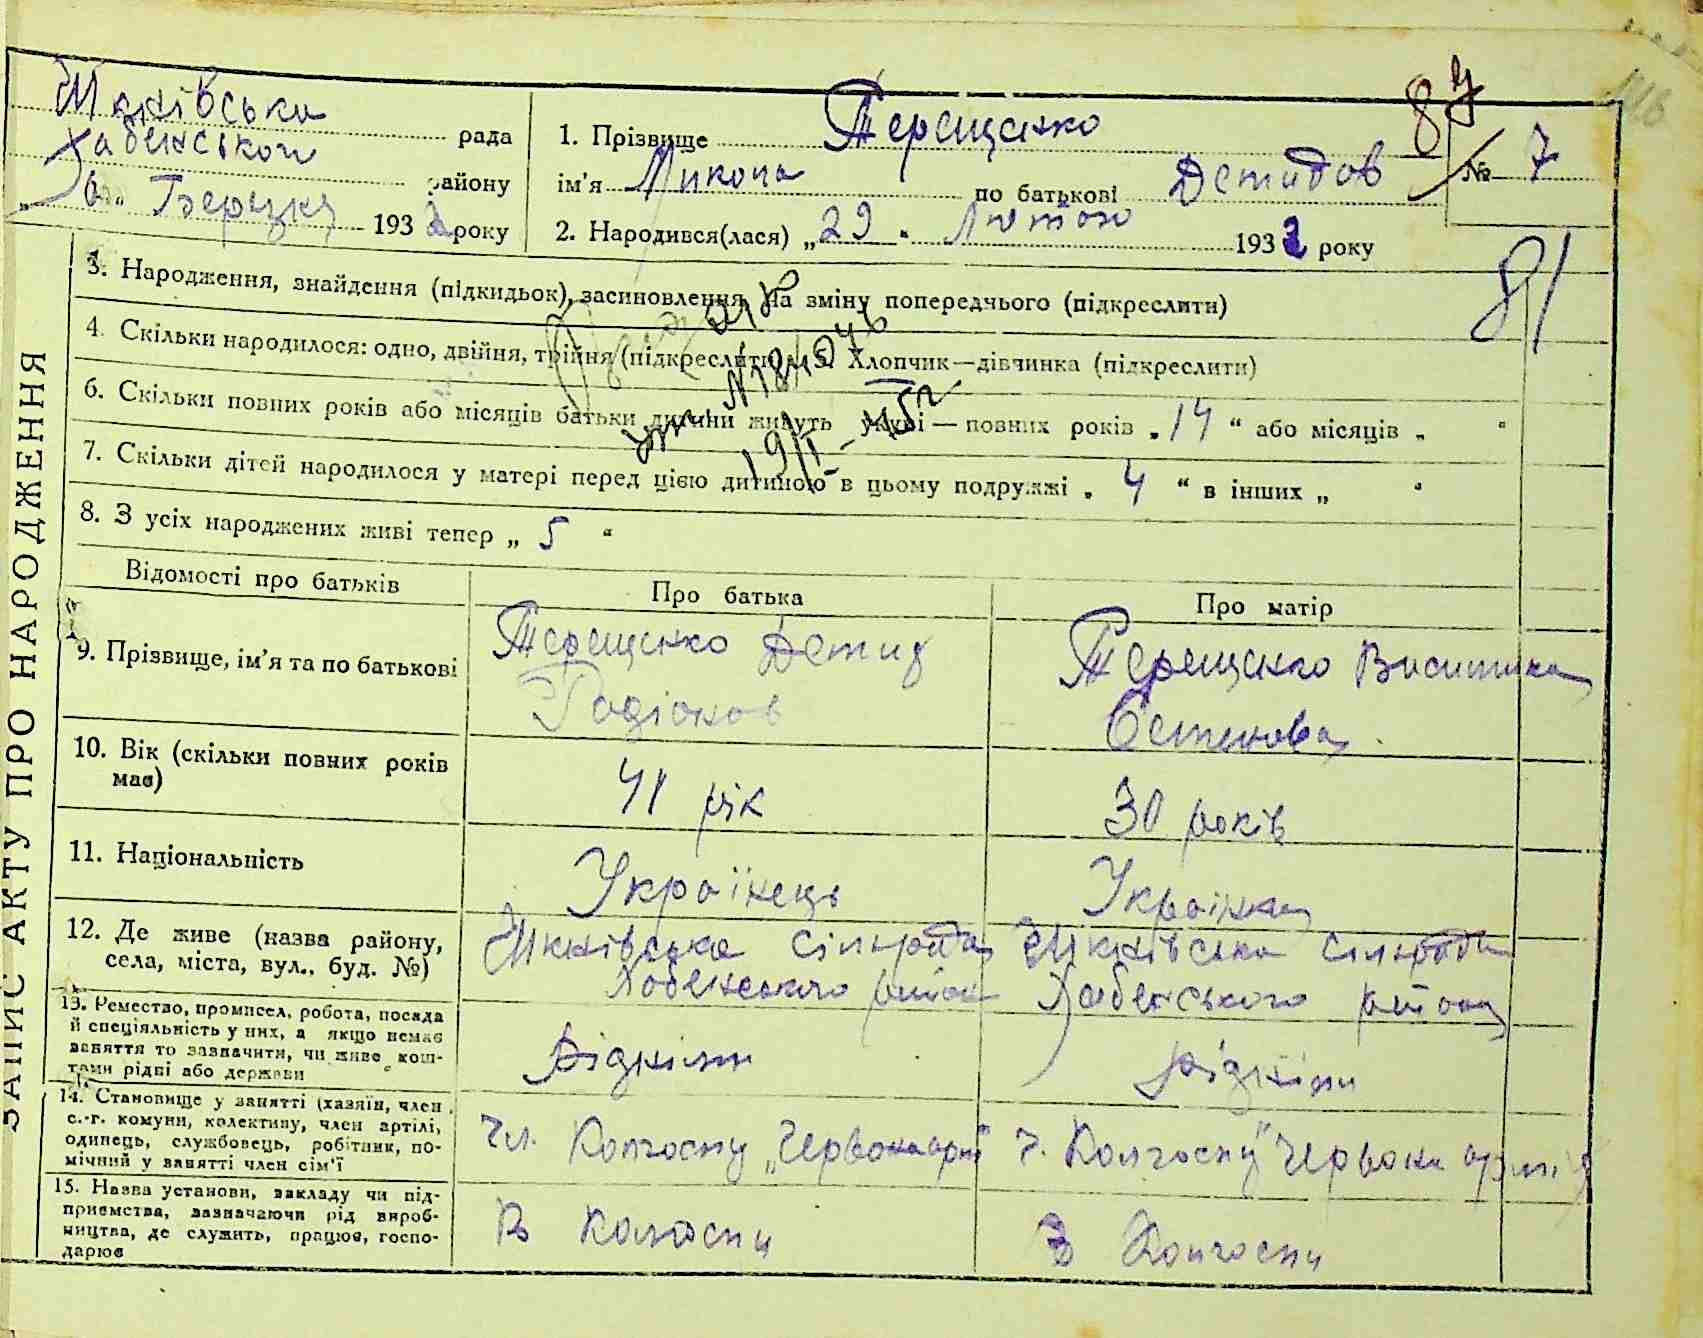 ЗАПИС АКТУ ПРО НАРОДЖЕННЯ
рада
району
193 року
1. Прізвище Терещенко
ім'я Микола по батькові Демидов
2. Народився(лася) „29 " Лютого 1932 року
№ 7
81
3. Народження, знайдення (підкидьок), засиновлення, на зміну попереднього (підкреслити)
4. Скільки народилося: одно, двійня, трійня (підкреслити) 5. Хлопчик—дівчинка (підкреслити)
6. Скільки повних років або місяців батьки дитини живуть укупі — повних років „ 14 “ або місяців „ “
7. Скільки дітей народилося у матері перед цією дитиною в цьому подружжі „ 4 “ в інших „ “
8. З усіх народжених живі тепер „ 5 “
Відомості про батьків
Про батька
Про матір
9. Прізвище, ім'я та по батькові
Терещенко Демид
Родіонов
Терещенко
10. Вік (скільки повних років
має)
41 рік
30 років
11. Національність
Українець
Українка
12. Де живе (назва району,
села, міста, вул., буд. №)
сільрада
району
сільрада
Хабенського району
13. Ремество, промисел, робота, посада
й спеціяльність у них, а якщо немає
заняття то зазначити, чи живе кош-
тами рідні або держави
14. Становище у занятті (хазяїн, член
с.-г. комуни, колективу, член артілі,
одинець, службовець, робітник, по-
мічний у занятті член сім'ї
Чл. Колгоспу
Ч. Колгоспу
15. Назва установи, закладу чи під-
приємства, зазначаючи рід вироб-
ництва, де служить, працює, госпо-
дарює
В Колгоспи
В Колгоспи